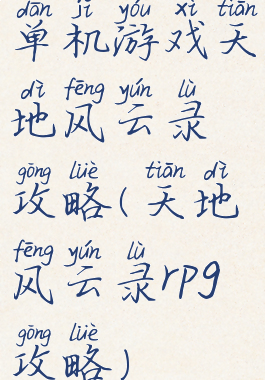 dān jī yóu xì tiān
单机游戏天
dì fēng yún lù
地风云录
gōng lüè tiān dì
攻略(天地
fēng yún lù
风云录rpg
gōng lüè
攻略)